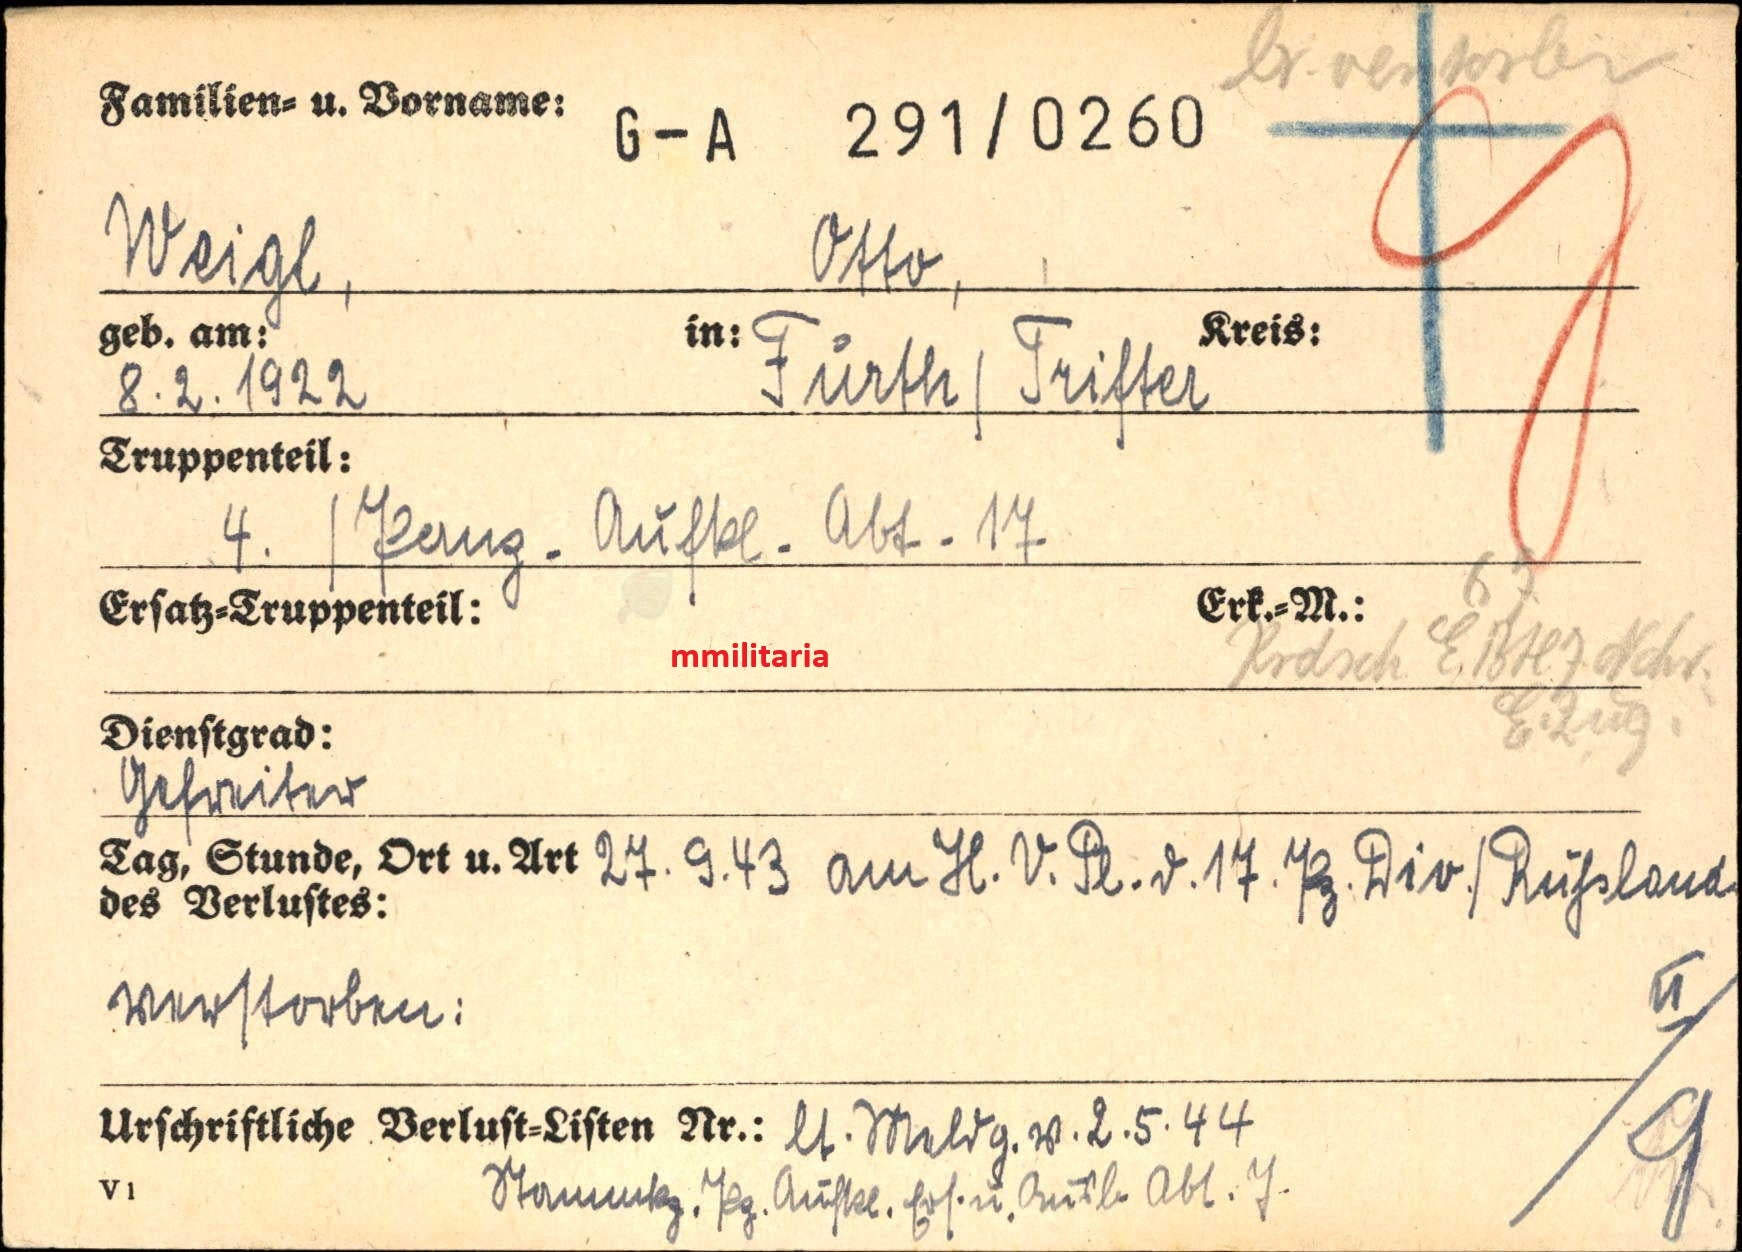 verstorben
Familien- u. Vorname:
G-A 291/0260
Weigl, Otto,
geb. am: in: Fürth/Trifter Kreis:
8.2.1922
Truppenteil:
4./Panz.-Aufkl.-Abt.-17
Ersatz-Truppenteil: Erk.-M.: 67
mmilitaria
Krdsch. E. Btl. 7 Nchr.
E. Zug.
Dienstgrad:
Gefreiter
Tag, Stunde, Ort u. Art 27.9.43 am H.V.Pl.d.17.Pz.Div./Rußland
des Verlustes:
verstorben:
II
Urschriftliche Verlust-Listen Nr.: lt. Meldg. v. 2.5.44
V 1 Stammkp. Pz. Aufkl. Ers. u. Ausb. Abt. 7.